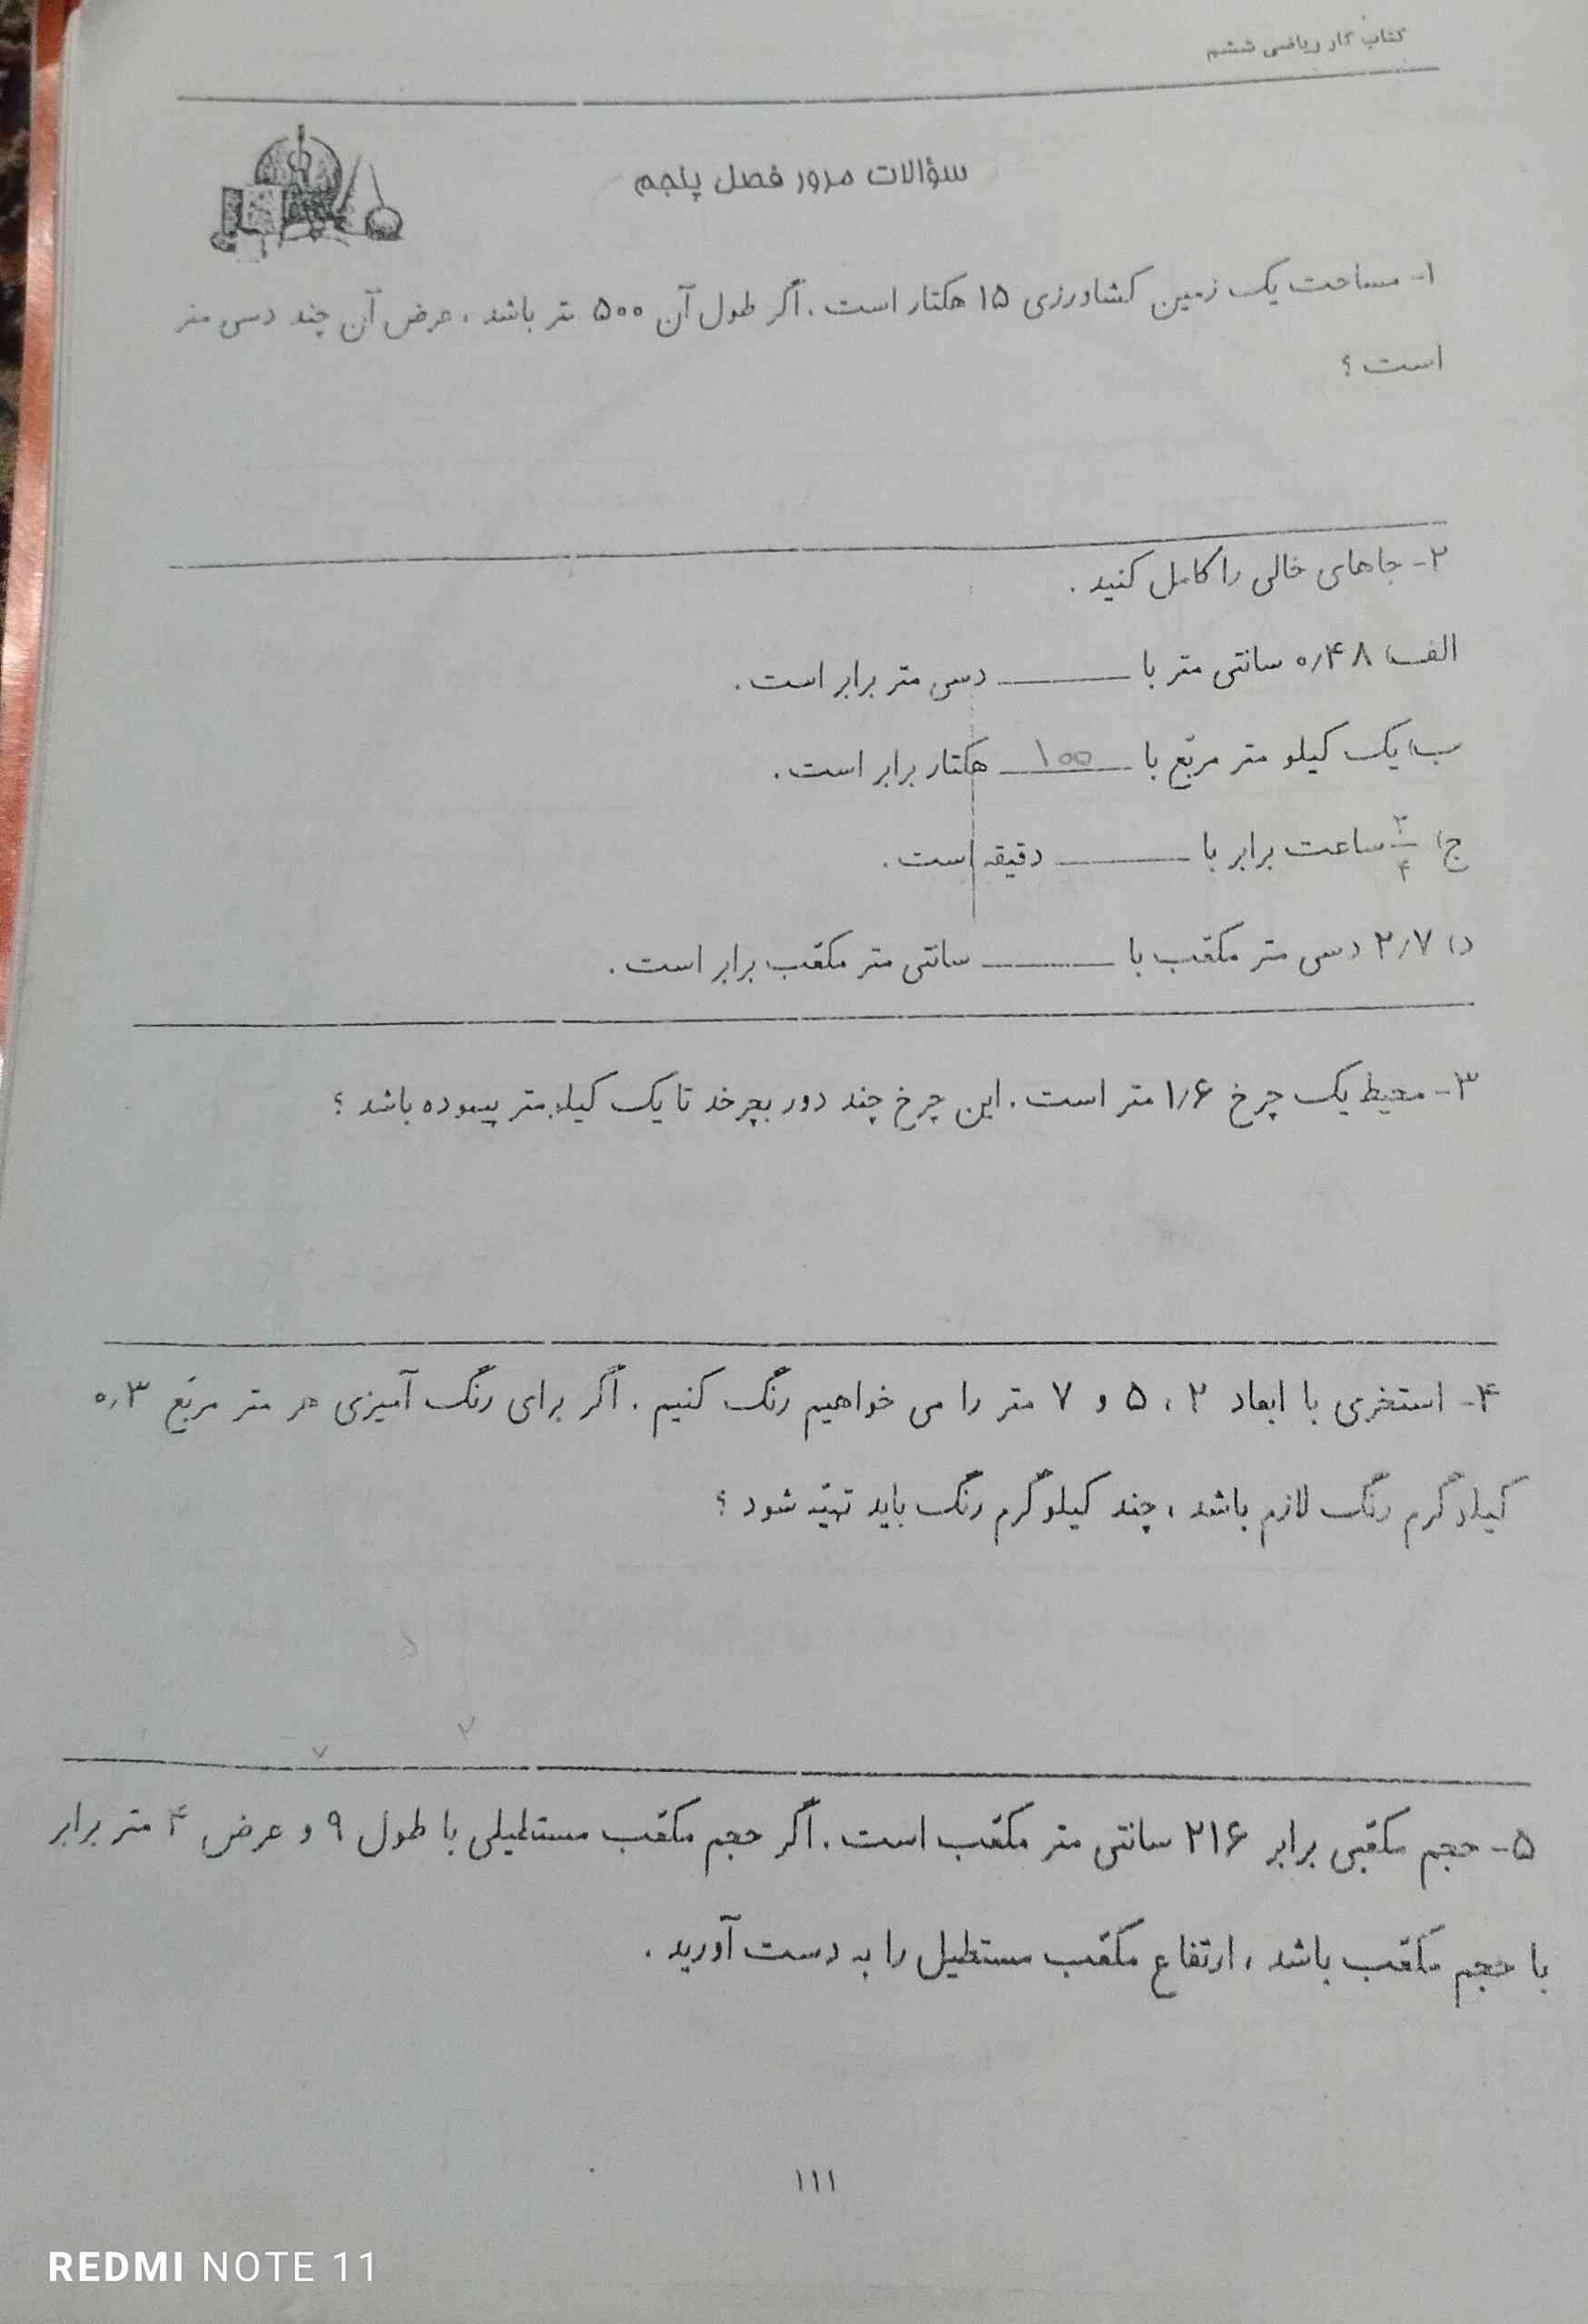 کتاب کار ریاضی ششم
سؤالات مرور فصل پنجم
۱- مساحت یک زمین کشاورزی ۱۵ هکتار است. اگر طول آن ۵۰۰ متر باشد، عرض آن چند دسی متر
است؟
۲- جاهای خالی را کامل کنید.
الف) ۰٫۴۸ سانتی متر با ______ دسی متر برابر است.
ب) یک کیلو متر مربّع با ۱۰۰ هکتار برابر است.
ج) ۳/۴ ساعت برابر با ______ دقیقه است.
د) ۲٫۷ دسی متر مکعّب با ______ سانتی متر مکعّب برابر است.
۳- محیط یک چرخ ۱٫۶ متر است. این چرخ چند دور بچرخد تا یک کیلومتر پیموده باشد؟
۴- استخری با ابعاد ۲، ۵ و ۷ متر را می خواهیم رنگ کنیم. اگر برای رنگ آمیزی هر متر مربّع ۰٫۳
کیلوگرم رنگ لازم باشد، چند کیلوگرم رنگ باید تهیّه شود؟
۵
۲
۷
۵- حجم مکعّبی برابر ۲۱۶ سانتی متر مکعّب است. اگر حجم مکعّب مستطیلی با طول ۹ و عرض ۴ متر برابر
با حجم مکعّب باشد، ارتفاع مکعّب مستطیل را به دست آورید.
۱۱۱
REDMI NOTE 11